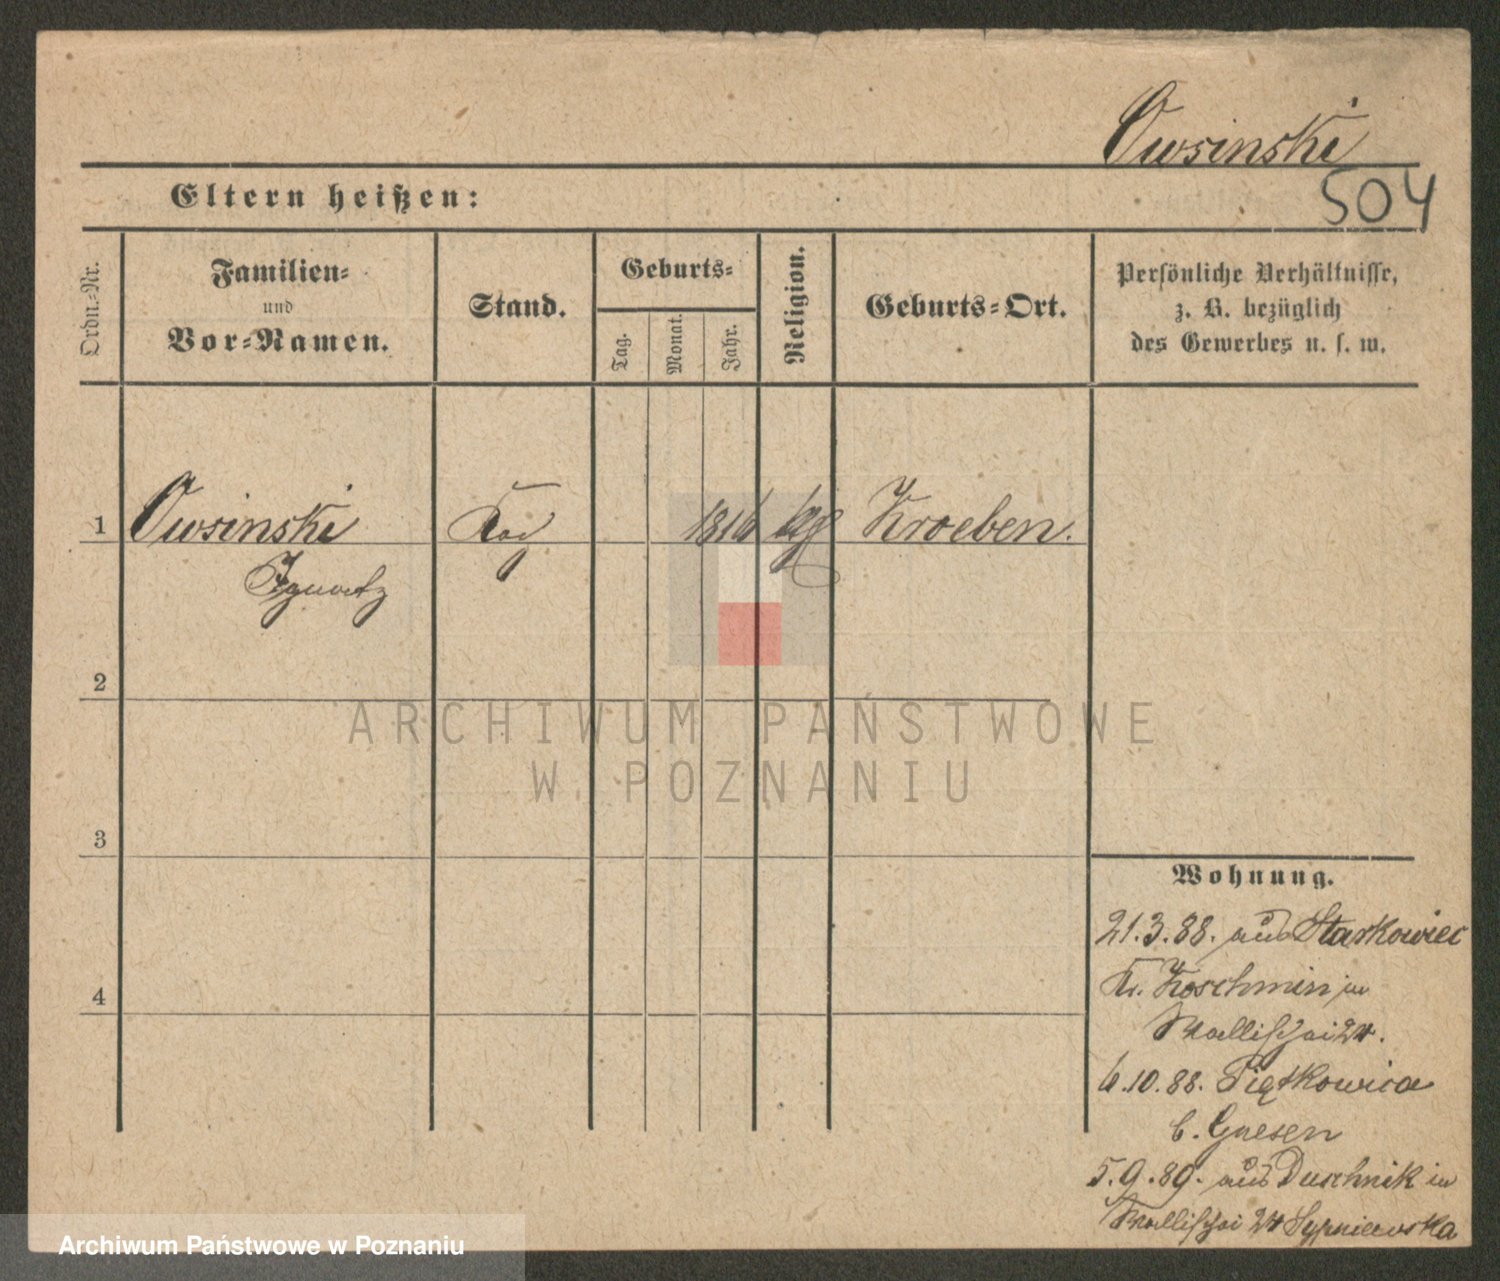 Owsinski
504
Eltern heißen:
Ordn.-Nr.
Familien-
und
Vor-Namen.
Stand.
Geburts-
Tag.
Monat.
Jahr.
Religion.
Geburts-Ort.
Persönliche Verhältnisse,
z. B. bezüglich
des Gewerbes u. s. w.
1 Owsinski 1816 Kroeben.
Ignatz
2
3
4
Wohnung.
21.3.88. aus Starkowiec
Kr. Koschmin in
Wallischei 24.
6.10.88. Piątkowica
b. Gnesen
5.9.89. aus Duschnik in
Wallischei 24 Sypniewska
ARCHIWUM PAŃSTWOWE
W POZNANIU
Archiwum Państwowe w Poznaniu